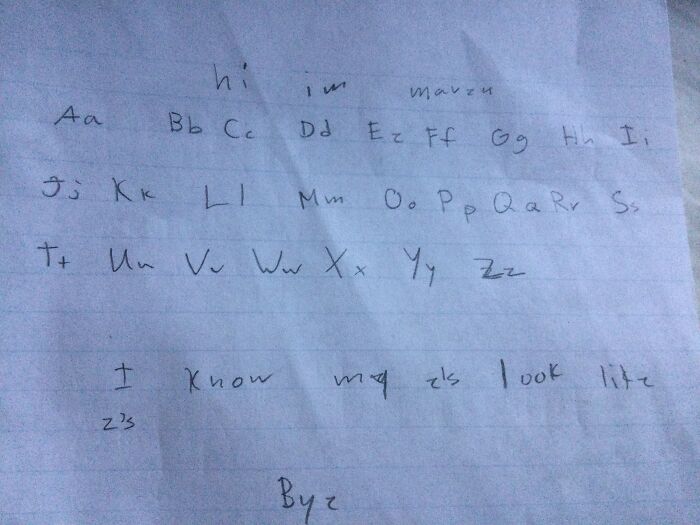 hi im maven
Aa Bb Cc Dd Ee Ff Gg Hh Ii
Jj Kk Ll Mm Oo Pp Qq Rr Ss
Tt Uu Vv Ww Xx Yy Zz
I know my e's look like
z's
Bye